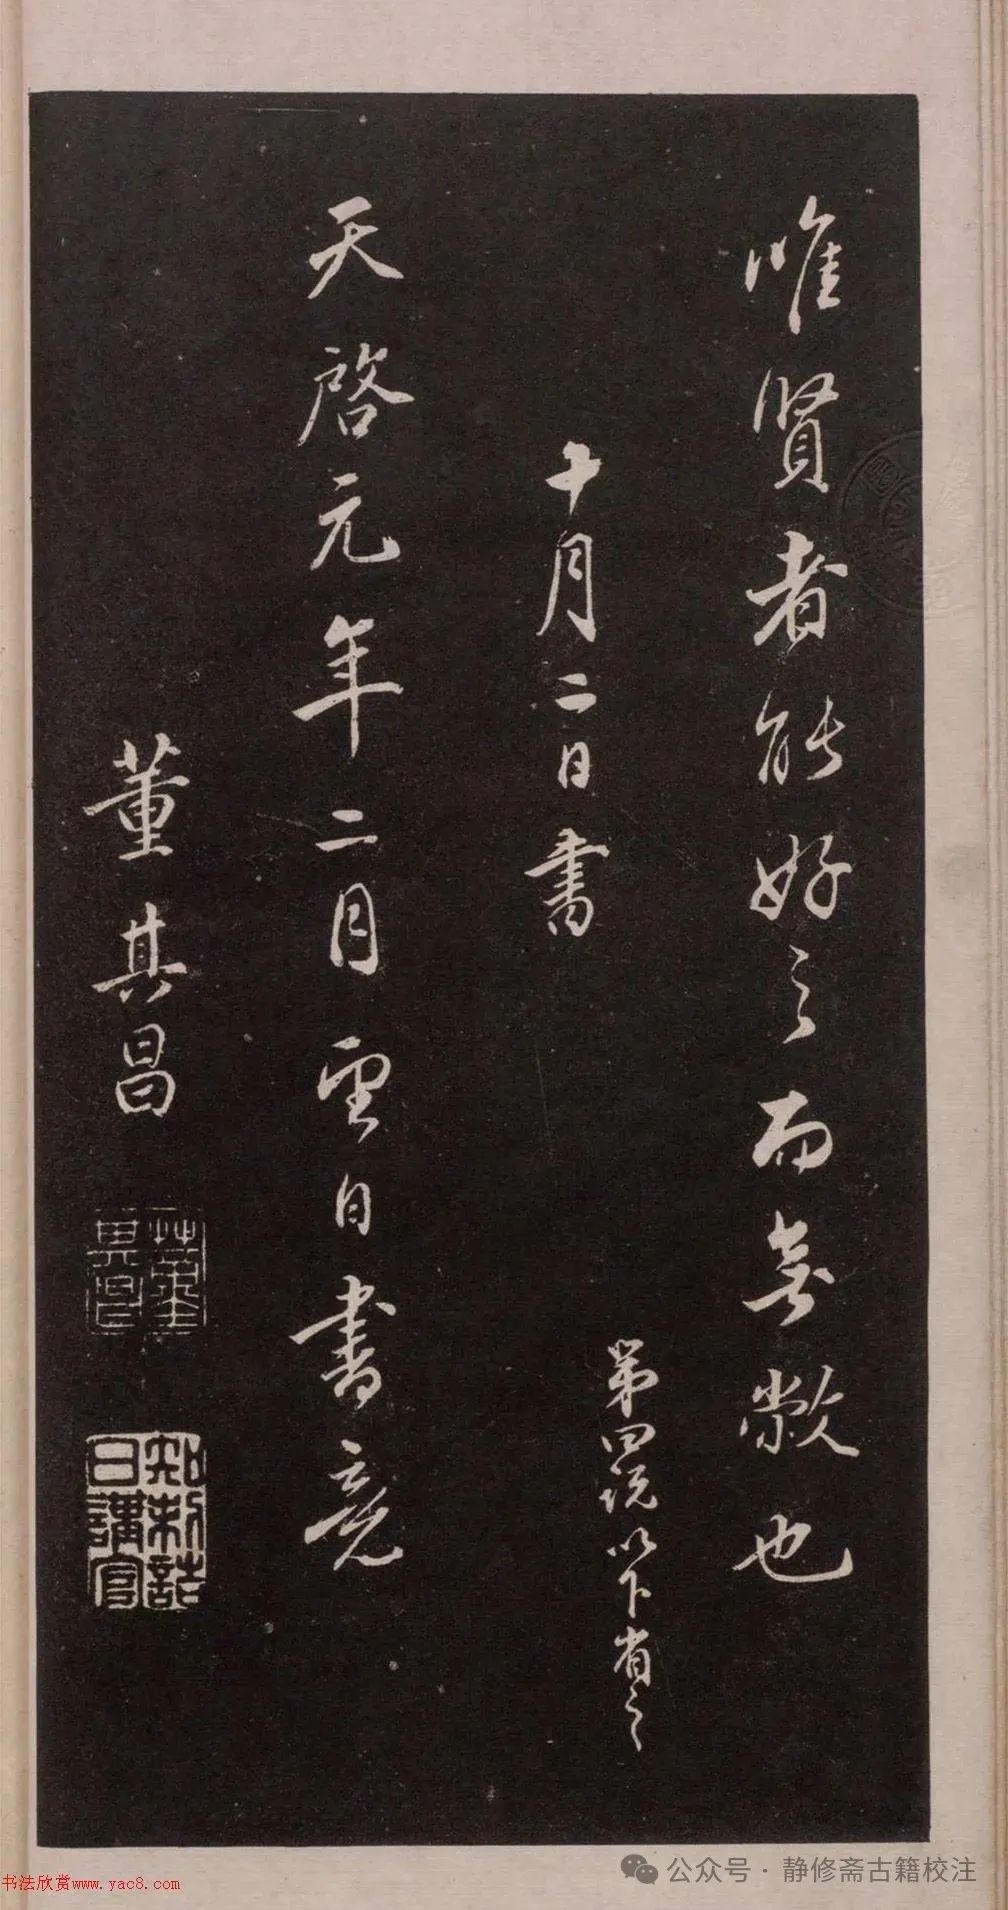 唯賢者能好之而無厭也
第四说以下省之
十月二日書
天啓元年二月望日書竟
董其昌
董其昌
知制誥日講官
书法欣赏www.yac8.com
公众号·静修斋古籍校注